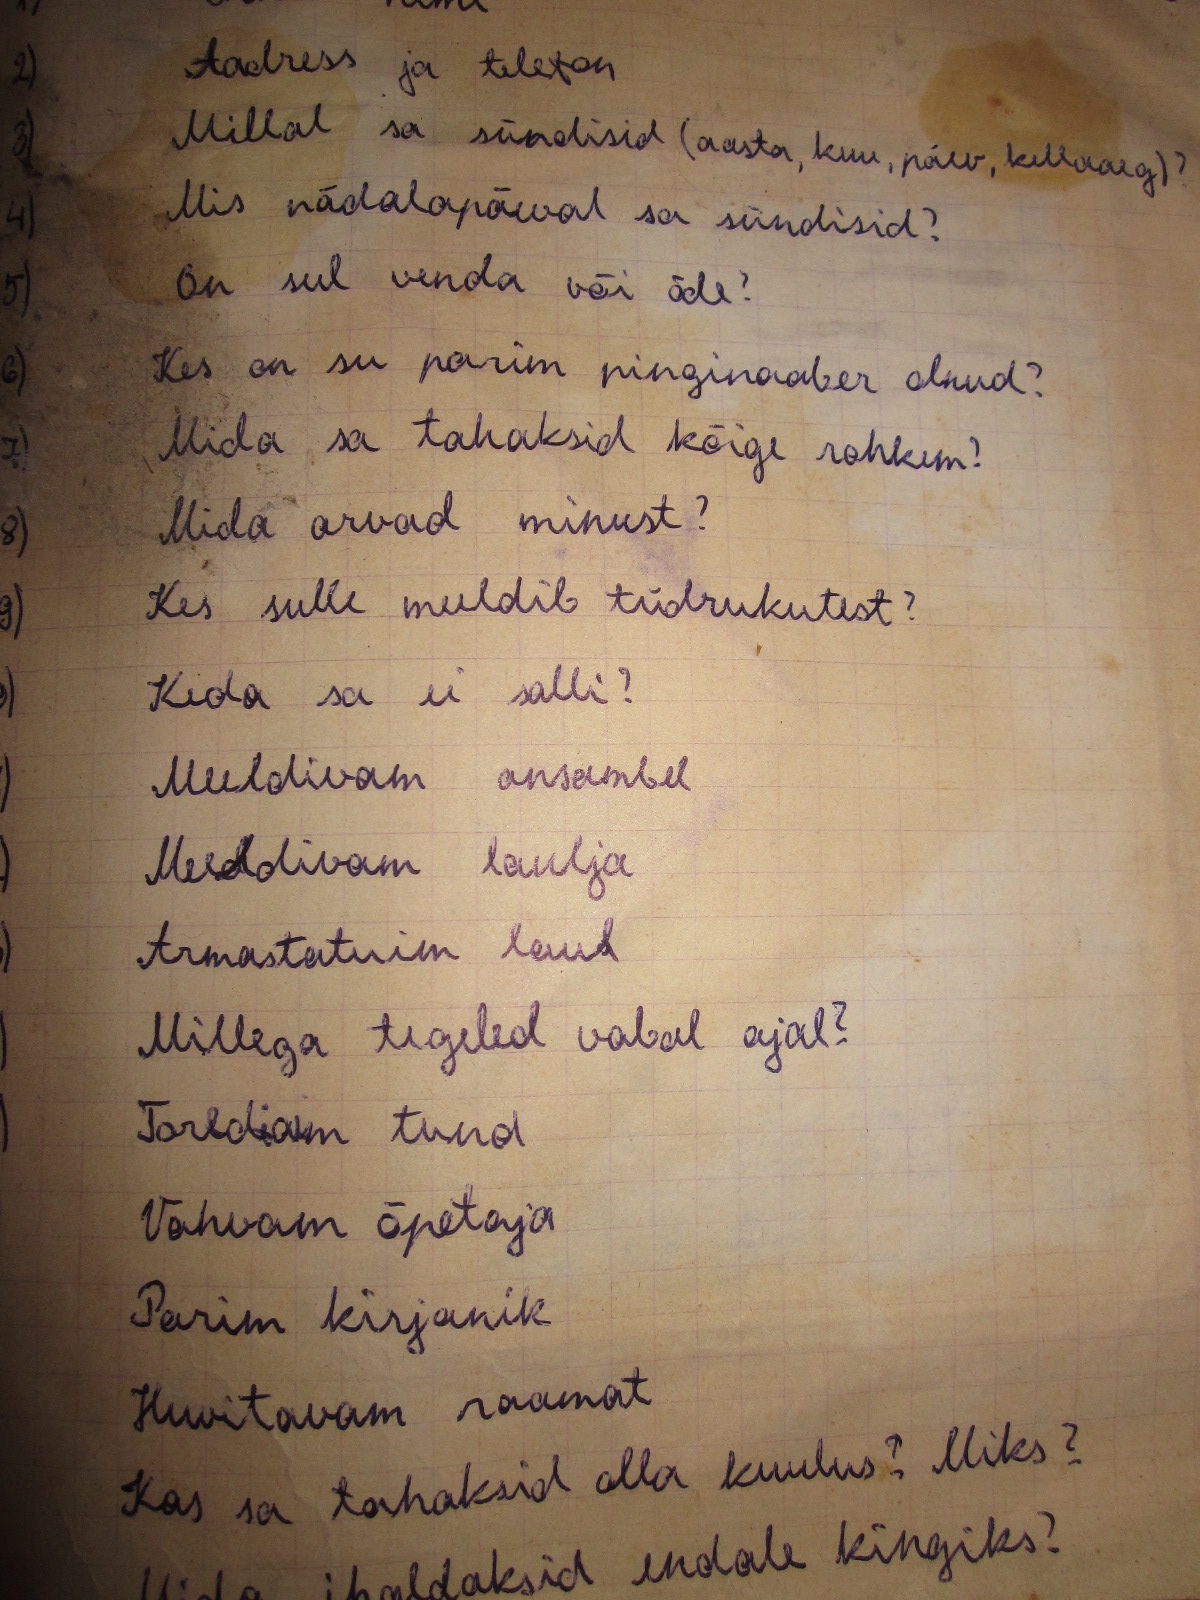 1) nimi
2) Aadress ja telefon
3) Millal sa sündisid (aasta, kuu, päev, kellaaeg)?
4) Mis nädalapäeval sa sündisid?
5) On sul venda või õde?
6) Kes on su parim pinginaaber olnud?
7) Mida sa tahaksid kõige rohkem?
8) Mida arvad minust?
9) Kes sulle meeldib tüdrukutest?
Keda sa ei salli?
Meeldivam ansambel
Meeldivam laulja
Armastatuim laul
Millega tegeled vabal ajal?
Toredaim tund
Vahvam õpetaja
Parim kirjanik
Huvitavam raamat
Kas sa tahaksid olla kuulus? Miks?
Mida ihaldaksid endale kingiks?